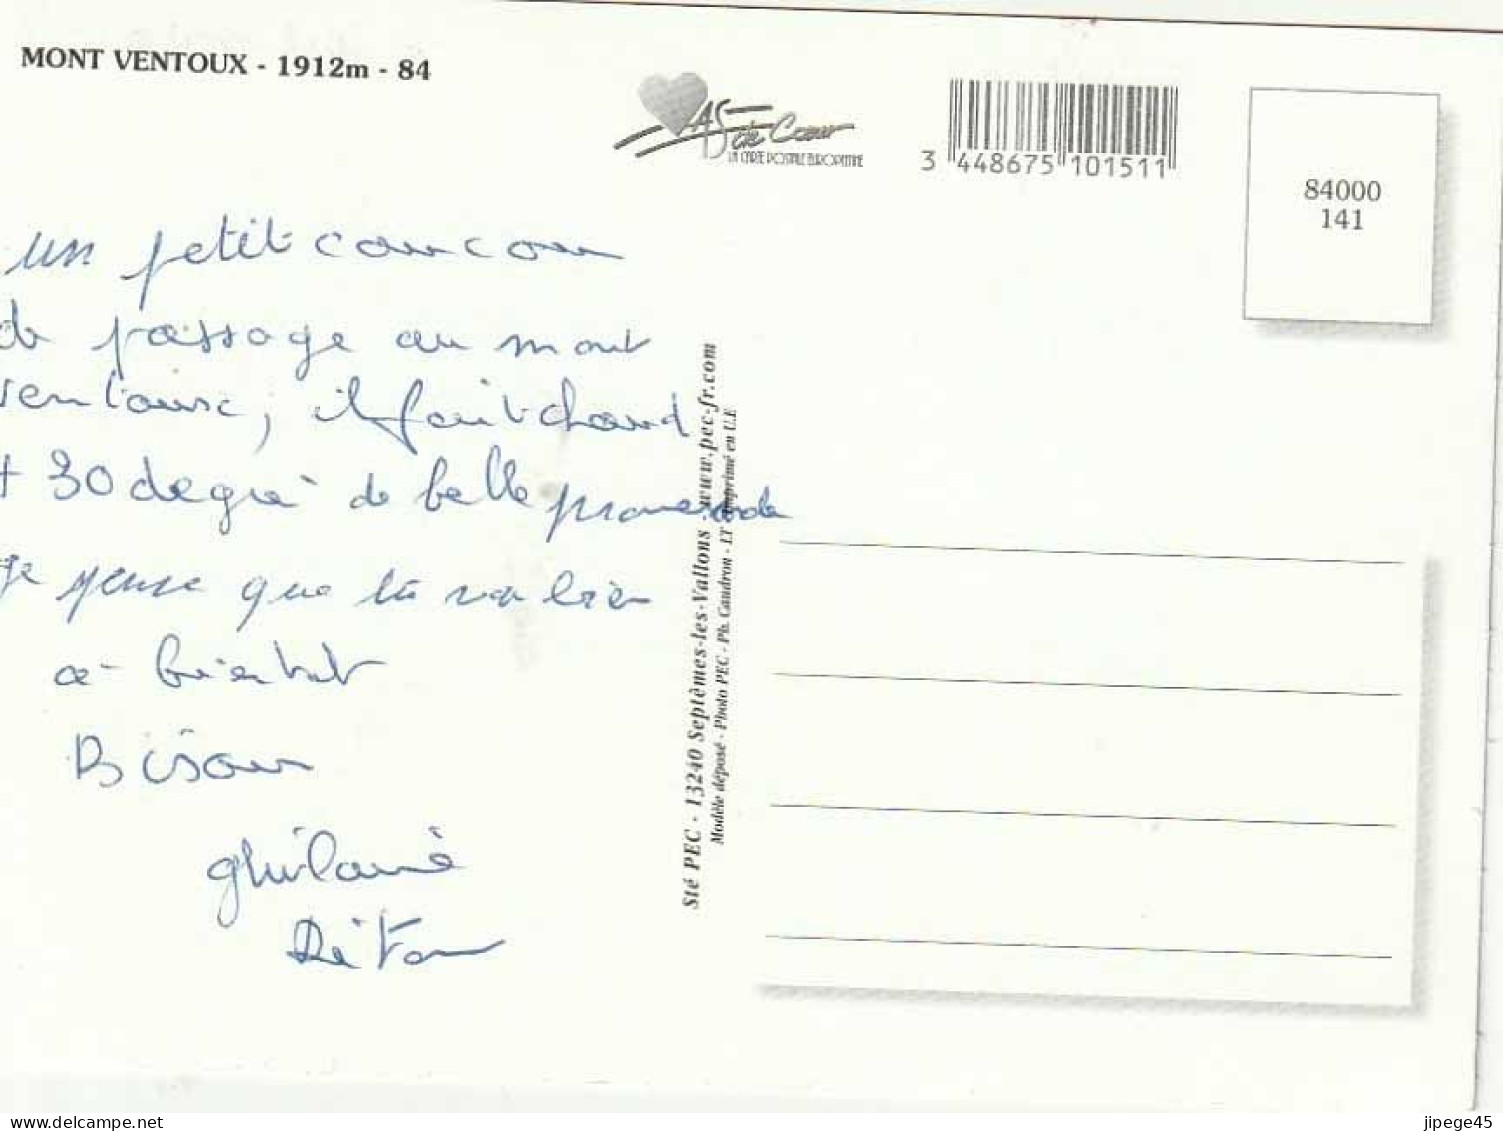 MONT VENTOUX - 1912m - 84
AS de Cœur
LA CARTE POSTALE EUROPEENNE
3 448675 101511
84000
141
un petit coucou
de passage au mont
ventoux, il fait chaud
+ 30 degré de belle promenade
je pense que tu va bien
a bientot
Bisou
Ghilaine
Sté PEC - 13240 Septèmes-les-Vallons - www.pec-fr.com
Modèle déposé - Photo PEC - Ph. Caudron - LT - Imprimé en U.E
delcampe.net
jipege45